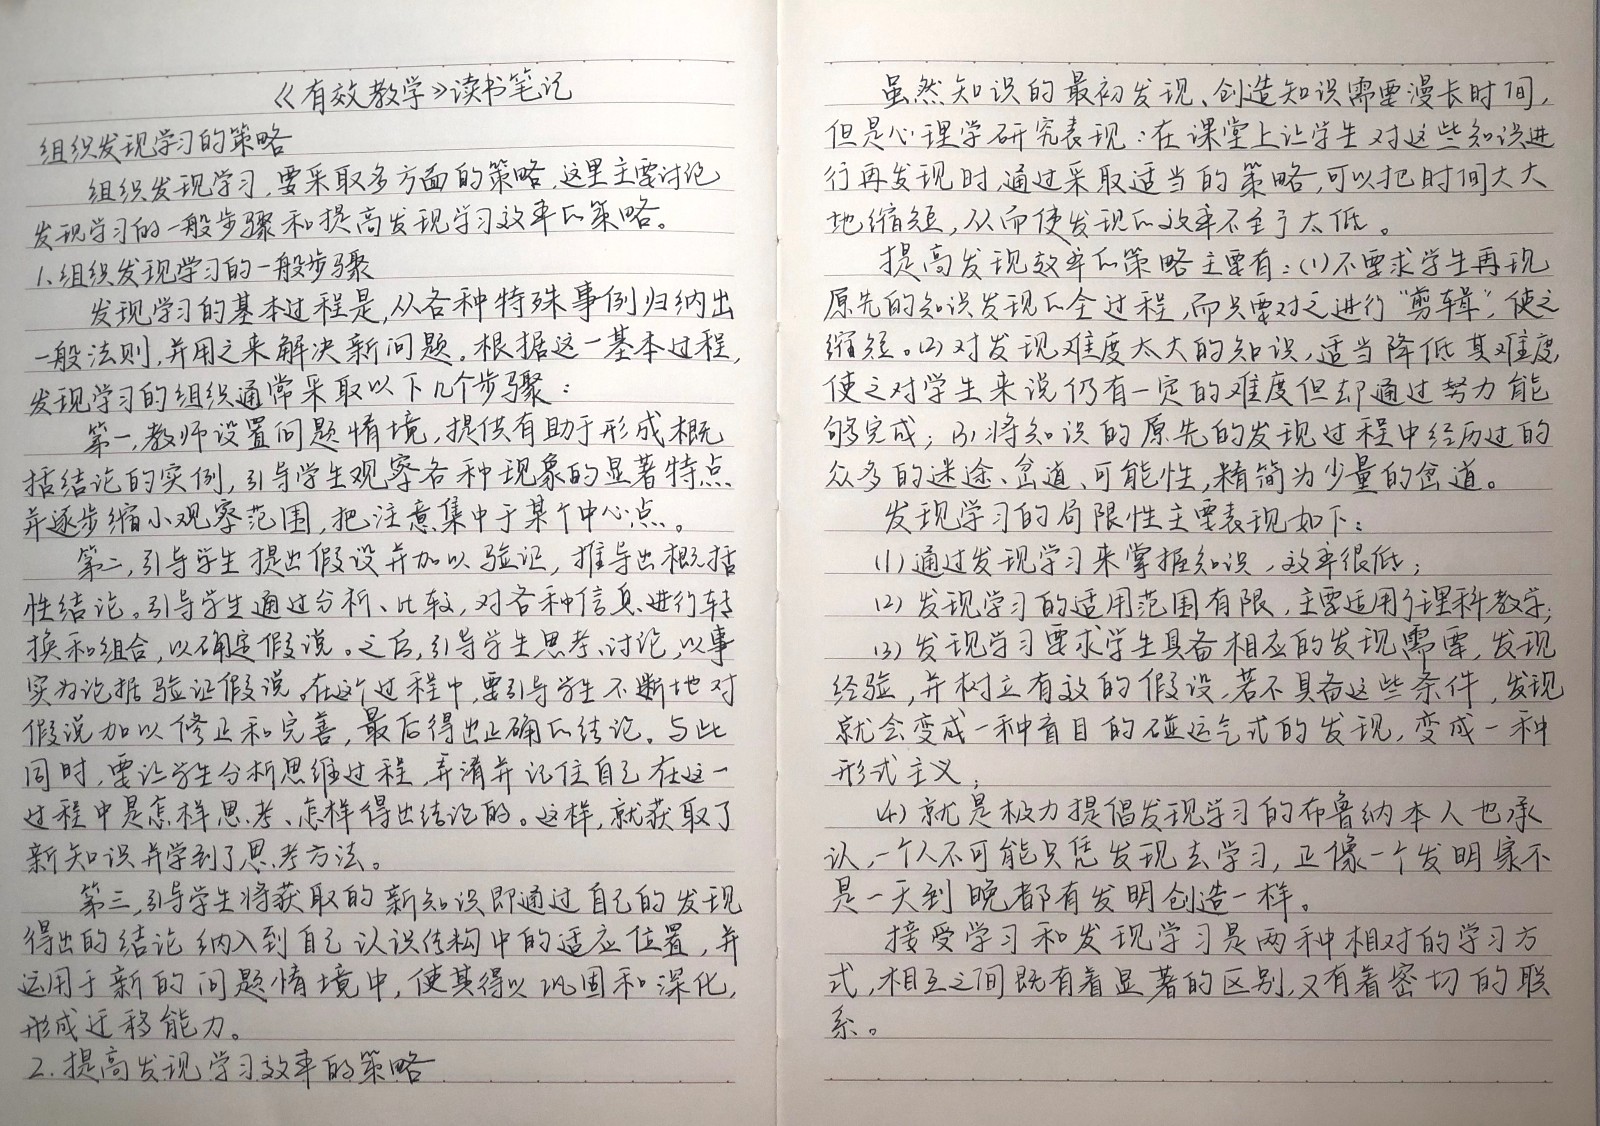 《有效教学》读书笔记
组织发现学习的策略
组织发现学习,要采取多方面的策略,这里主要讨论
发现学习的一般步骤和提高发现学习效率的策略。
1.组织发现学习的一般步骤
发现学习的基本过程是,从各种特殊事例归纳出
一般法则,并用之来解决新问题。根据这一基本过程,
发现学习的组织通常采取以下几个步骤:
第一,教师设置问题情境,提供有助于形成概
括结论的实例,引导学生观察各种现象的显著特点
并逐步缩小观察范围,把注意集中于某个中心点。
第二,引导学生提出假设并加以验证,推导出概括
性结论。引导学生通过分析、比较,对各种信息进行转
换和组合,以确定假说。之后,引导学生思考、讨论,以事
实为论据验证假说。在这个过程中,要引导学生不断地对
假说加以修正和完善,最后得出正确的结论。与此
同时,要让学生分析思维过程,弄清并记住自己在这一
过程中是怎样思考、怎样得出结论的。这样,就获取了
新知识并学到了思考方法。
第三,引导学生将获取的新知识即通过自己的发现
得出的结论纳入到自己认识结构中的适应位置,并
运用于新的问题情境中,使其得以巩固和深化,
形成迁移能力。
2.提高发现学习效率的策略
虽然知识的最初发现、创造知识需要漫长时间,
但是心理学研究表现:在课堂上让学生对这些知识进
行再发现时,通过采取适当的策略,可以把时间大大
地缩短,从而使发现的效率不至于太低。
提高发现效率的策略主要有:(1)不要求学生再现
原先的知识发现的全过程,而只要对之进行“剪辑”,使之
缩短。(2)对发现难度太大的知识,适当降低其难度,
使之对学生来说仍有一定的难度但却通过努力能
够完成;(3)将知识的原先的发现过程中经历过的
众多的迷途、岔道、可能性,精简为少量的岔道。
发现学习的局限性主要表现如下:
(1)通过发现学习来掌握知识,效率很低;
(2)发现学习的适用范围有限,主要适用于理科教学;
(3)发现学习要求学生具备相应的发现需要,发现
经验,并树立有效的假设,若不具备这些条件,发现
就会变成一种盲目的碰运气式的发现,变成一种
形式主义;
(4)就是极力提倡发现学习的布鲁纳本人也承
认,一个人不可能只凭发现去学习,正像一个发明家不
是一天到晚都有发明创造一样。
接受学习和发现学习是两种相对的学习方
式,相互之间既有着显著的区别,又有着密切的联
系。